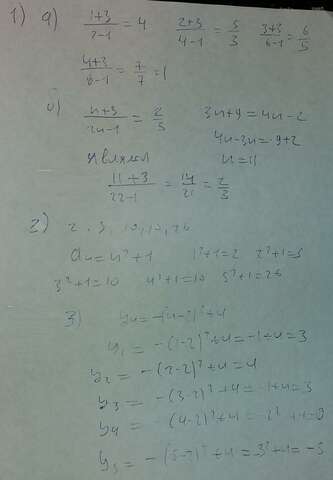 1) а) (1+3)/(2-1) = 4   (2+3)/(4-1) = 5/3   (3+3)/(6-1) = 6/5
(4+3)/(8-1) = 7/7 = 1
б) (n+3)/(2n-1) = 2/3   3n+9 = 4n-2
4n-3n = 9+2
является   n = 11
(11+3)/(22-1) = 14/21 = 2/3
2) 2, 5, 10, 10, 26
an = n²+1   1²+1=2   2²+1=5
3²+1=10   4²+1=10   5²+1=26
3) yn = -(n-2)²+4
y1 = -(1-2)²+4 = -1+4 = 3
y2 = -(2-2)²+4 = 4
y3 = -(3-2)²+4 = -1+4 = 3
y4 = -(4-2)²+4 = -2²+4=0
y5 = -(5-2)²+4 = 3²+4 = -5